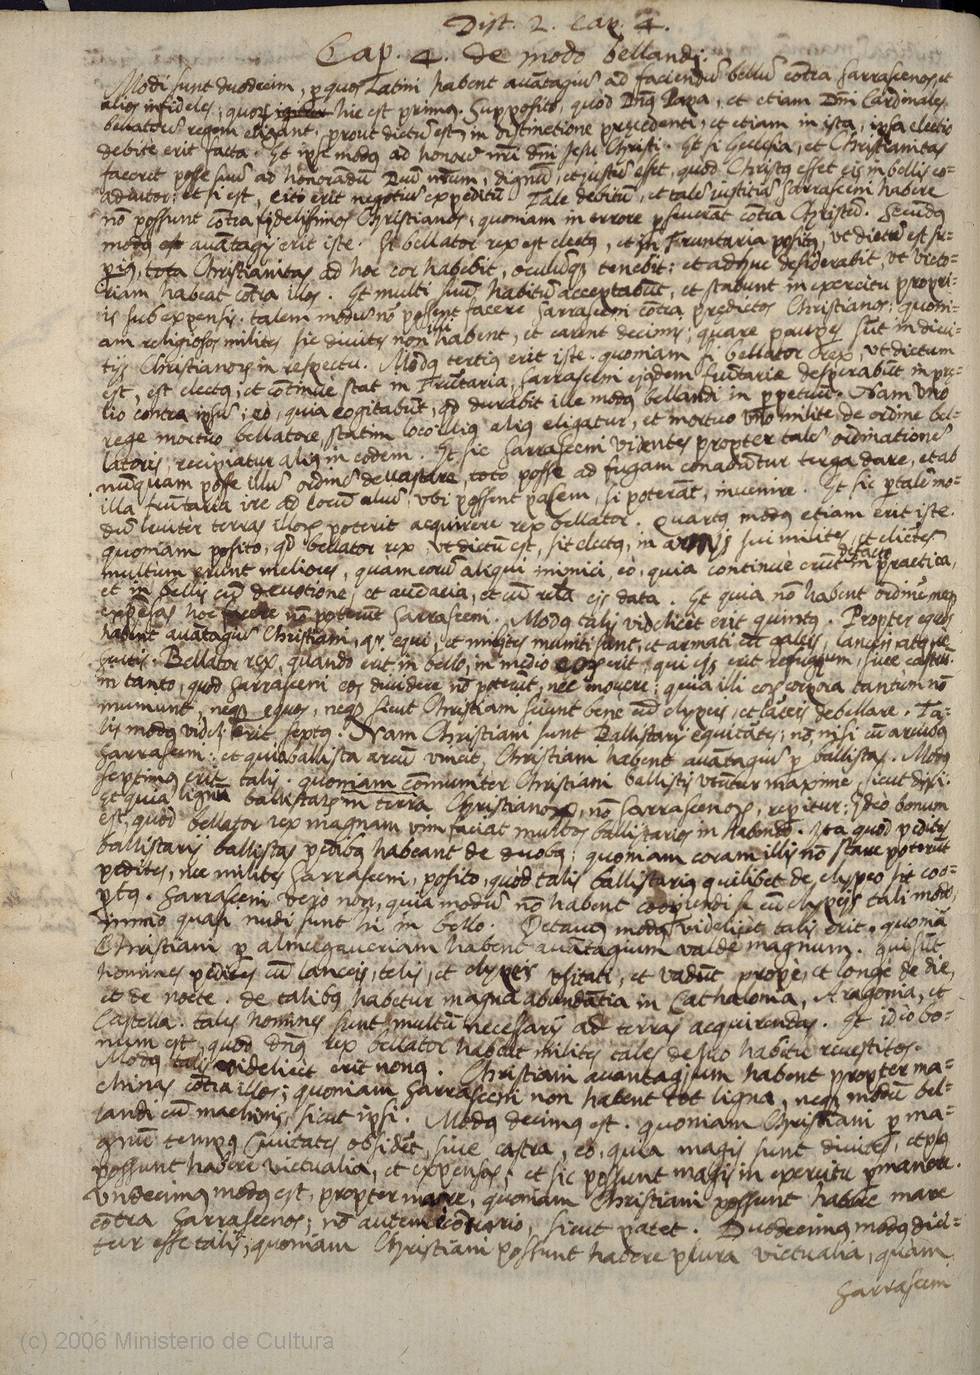 Dist. 2. Cap. 4.
Cap. 4. de modo bellandi.
Modi sunt duodecim, p quos Latini habent auātagiū ad faciendū bellū cōtra Sarrascenos et
alios infideles; quorū hic est primꝰ. Supposito, quod Dnꝰ Papa, et etiam Dni Cardinales
bellatorē regem eligant, prout dictū est, in distinctione precedenti, et etiam in ista, ipsa electio
debite erit facta. Et ipse modꝰ ad honorē nri dni Jesu Christi. Et si Ecclesia, et Christianitas
facerit posse suū ad honorandū Deū nrum, dignū, et justū esset, quod Christꝰ esset eis in bellis co-
adiutor: et si est, cito erit negotiū expeditū. Tale debitū, et talē iustitiā Sarrasceni habere
nō possunt cōtra fidelissimos Christianos, quoniam in errore pseuerāt cōtra Christū. Secundꝰ
modꝰ auātagij erit iste. Et bellator rex est electꝰ, et in Frontaria positꝰ, vt dictū est su-
piꝰ, tota Christianitas ad hoc cor habebit, oculūqꝫ tenebit: et adhuc desiderabit, vt victo-
riam habeat cōtra illos. Et multi suum habitū acceptabūt, et stabunt in exercitu propri-
is sub expensis. talem modū nō possent facere Sarrasceni cōtra predictos Christianos: quoni-
am religiosos milites sic diuites non habent, et carent decimis; quare paupes sūt in diui-
tijs Christianorū in respectu. Modꝰ tertiꝰ erit iste. quoniam si bellator rex, vt dictum
est, est electꝰ, et cōtinue stat in Frūtaria, Sarrasceni ejusdem frūtarie desperabūt in pre-
lio contra ipsū; eo, quia cogitabūt, qd durabit ille modꝰ bellandi in ppetuū. Nam vno
rege mortuo bellatore, statim loco illiꝰ aliꝰ eligatur, et mortuo vno milite, de ordine bel-
latoris, recipiatur aliꝰ in eodem. Et sic Sarrasceni videntes propter talē ordinationē
nunquam posse illū ordinē deuastare, toto posse ad fugam conabūtur terga dare, et ab
illa frūtaria ire ad locū aliū, vbi possent pasem, si poterāt, inuenire. Et sic p talē mo-
dum leuiter terras illorū poterit acquirere rex bellator. Quartꝰ modꝰ etiam erit iste.
quoniam posito, qd bellator rex, vt dictū est, sit electꝰ, in armis sui milites, et clietes
multum erunt meliores, quam eorū aliqui inimici, eo, quia continue erūt de facto in practica,
et in bellis cū deuotione, et audacia, et cū rela eis data. Et quia nō habent ordinē, neqꝫ
expēsas hoc facere nō poterūt Sarrasceni. Modꝰ talis videlicet erit quintꝰ. Propter equos
habent auātagiū Christiani, qr equi, et milites muniti sunt, et armati
Bellator rex, quando erit in bello, in medio eorū erit, qui eis erit refugium, siue castrū.
in tanto, quod Sarrasceni eos diuidere nō poterūt, nec mouere; quia illi eorū corpora tantum nō
muniunt, neqꝫ equos, neqꝫ sicut Christiani sciunt bene cū clypeis, et lāceis debellare. Ta-
lis modꝰ videlicet erit sextꝰ. Nam Christiani sunt Ballistarij equitātes; nō, nisi cū arcubꝰ
Sarrasceni: et quia ballista arcum vincit, Christiani habent auātagiū p ballistas. Modꝰ
septimꝰ erit talis. quoniam cōmuniter Christiani ballistis vtūtur maxime, sicut dixi.
Et quia lignū ballistarū in terra Christianorū, nō Sarrascenorū, repitur: Ideo bonum
est, quod bellator rex magnam vim faciat multos ballistarios in habendo. Ita quod pedites
ballistarij ballistas pedibꝰ habeant de duobꝰ; quoniam coram illis nō stare poterūt
pedites, nec milites Sarrasceni, posito, quod talis ballistariꝰ quilibet de clypeo sit coo-
ptꝰ. Sarrasceni vero non, quia modū nō habent cooperiendi se cū clypeis tali modo,
immo quasi nudi sunt hi in bello. Octauꝰ modꝰ videlicet talis erit. quoniā
Christiani p almegaueriam habent auātagium valde magnum. Qui sūt
homines pedites cū lanceis, telis, et clypeis vsitati, et vadūt prope, et longe de die,
et de nocte. de talibꝰ habetur magna abundātia in Cathalonia, Aragonia, et
Castella. tales homines sunt multū necessarij ad terras acquirendas. Et ideo bo-
num est, quod dnꝰ rex bellator habeat milites tales de suo habitu reuestitos.
Modꝰ talis videlicet erit nonꝰ. Christiani auantagium habent propter ma-
chinas cōtra illos; quoniam Sarrasceni non habent tot ligna, neqꝫ modū bel-
landi cū machinis, sicut ipsi. Modꝰ decimꝰ est. quoniam Christiani p ma-
gnū tempꝰ Ciuitates obsidēt, siue castra, eo, quia magis sunt diuites, et plꝰ
possunt habere victualia, et expensas; et sic possunt magis in exercitu pmanere.
Vndecimꝰ modꝰ est, propter mare, quoniam Christiani possunt habere mare
cōtra Sarrascenos; nō autem e cōtrario, sicut patet. Duodecimꝰ modꝰ dici-
tur esse talis; quoniam Christiani possunt habere plura victualia, quam
Sarrasceni
(c) 2006 Ministerio de Cultura